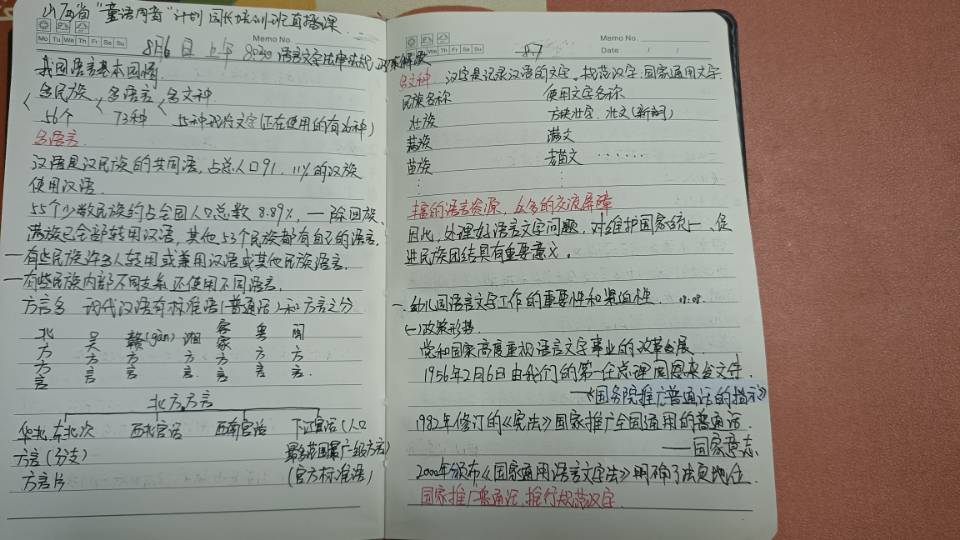 山西省“童语同音”计划园长培训班直播课
Memo No.
Mo Tu We Th Fr Sa Su
8月6日 上午 8:30 语言文字法律法规、政策解读
我国语言基本国情
多民族 多语言 多文种
56个 73种 55种现行文字(正在使用的有26种)
多语言
汉语是汉民族的共同语,占总人口91.11%的汉族
使用汉语.
55个少数民族约占全国人口总数8.89%,一除回族、
满族已全部转用汉语,其他53个民族都有自己的语言.
一有些民族许多人转用或兼用汉语或其他民族语言.
一有些民族内部不同支系还使用不同语言.
方言多 现代汉语有标准语(普通话)和方言之分
北方方言 吴方言 赣(gàn)方言 湘方言 客家方言 粤方言 闽方言
北方方言
华北、东北次 西北官话 西南官话 下江官话(人口
方言(分支) 最多范围最广一级方言)
方言片 (官方标准语)
Memo No.
We Th Fr Sa Su
Date / /
多文种 汉字是记录汉语的文字。规范汉字:国家通用文字
民族名称 使用文字名称
壮族 方块壮字、壮文(新制)
满族 满文
苗族 老苗文 ……
⋮ ⋮
丰富的语言资源,众多的交流屏障
因此,处理好语言文字问题,对维护国家统一、促
进民族团结具有重要意义。
一、幼儿园语言文字工作的重要性和紧迫性.
(一)政策形势
党和国家高度重视语言文字事业的改革发展
1956年2月6日由我们的第一任总理周恩来发文件.
——《国务院推广普通话的指示》
1982年修订的《宪法》国家推广全国通用的普通话
——国家意志
2000年颁布《国家通用语言文字法》明确了法定地位.
国家推广普通话,推行规范汉字